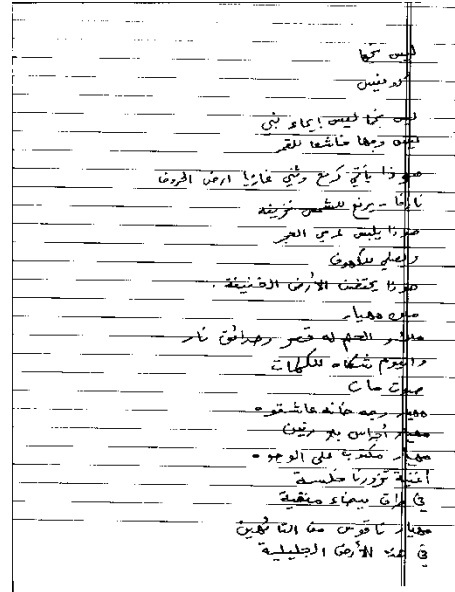 ليس نجما
أدونيس
ليس نجما ليس إيحاء نبي
ليس وجها خاشعا للقمر
هوذا يأتي كرمح وثني غازيا ارض الحروف
نازفا - يرفع للشمس نزيفه
هوذا يلبس عري الحجر
ويصلي للكهوف
هوذا يحتضن الأرض الخفيفة .
ملك مهيار
ملك والحلم له قصر وحدائق نار
واليوم شكاه للكلمات
صوت مات
مهيار وجه خانه عاشقوه
مهيار أجراس بلا رنين
مهيار مكتوب على الوجوه
أغنية تزورنا خلسة
في طرق بيضاء منفية
مهيار ناقوس من التائهين
في هذه الأرض الجليلية